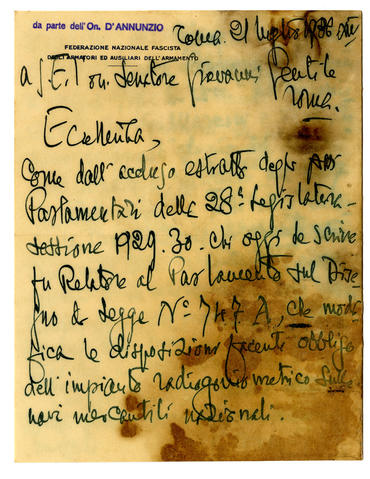 da parte dell'On. D'ANNUNZIO
Roma. 21 luglio 1936
FEDERAZIONE NAZIONALE FASCISTA
DEGLI ARMATORI ED AUSILIARI DELL'ARMAMENTO
a S. E. l'on. Senatore Giovanni Gentile
Roma.
Eccellenza,
Come dall'accluso estratto degli
Parlamentari della 28ª Legislatura-
sessione 1929.30. chi oggi Le scrive
fu Relatore al Parlamento sul Dise
gno di Legge Nº 747 A, che modi
fica le disposizioni facenti obbligo
dell'impianto radiogoniometrico sulle
navi mercantili nazionali.